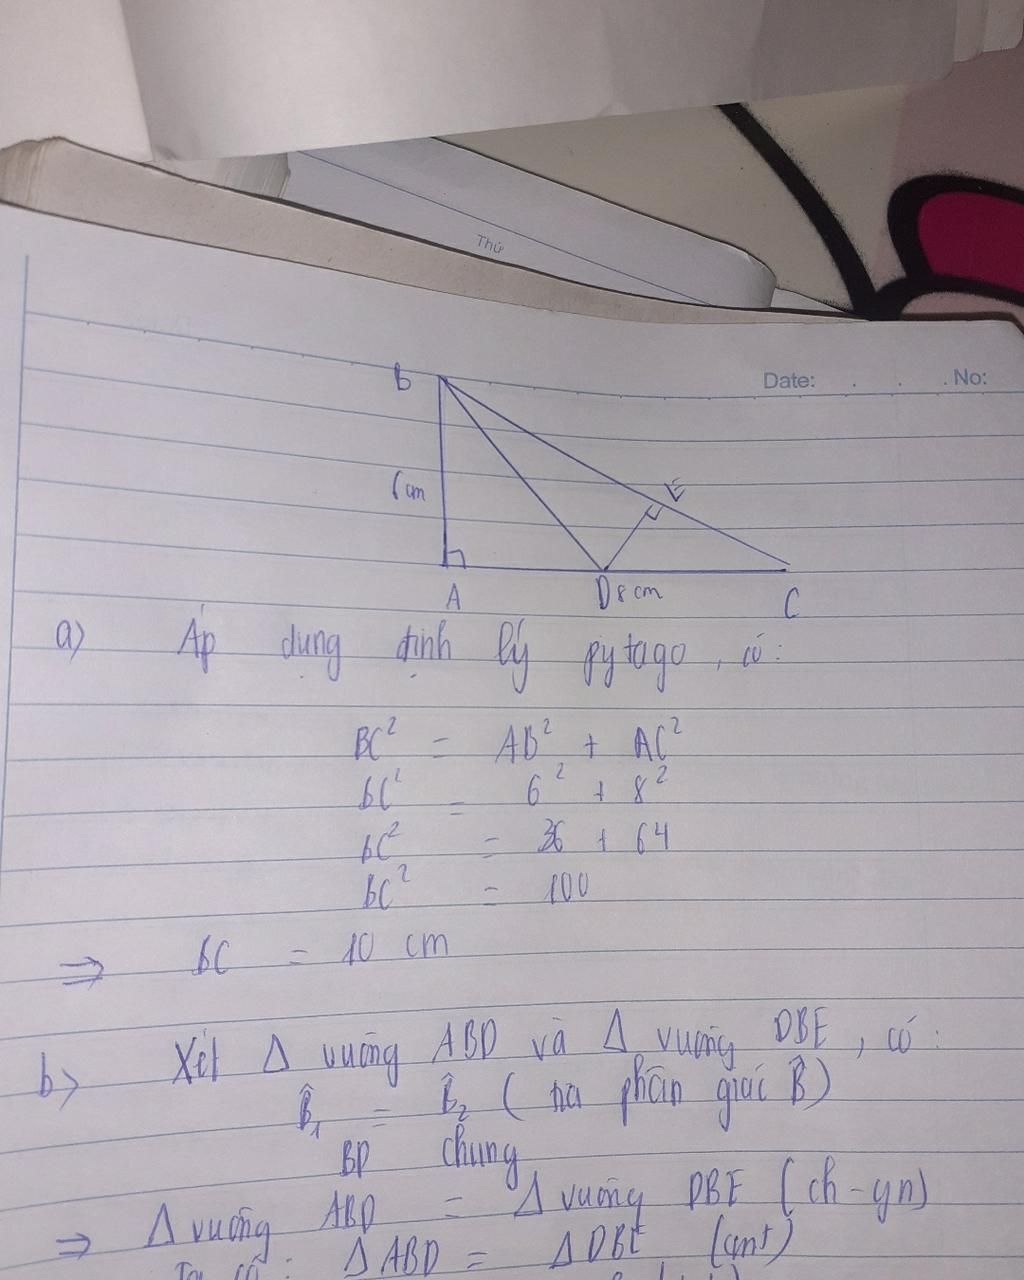 Thứ
Date: . . . No:
B
6cm
E
A
D 8cm
C
a) Áp dụng định lý pytago, có:
BC² = AB² + AC²
BC² = 6² + 8²
BC² = 36 + 64
BC² = 100
⇒ BC = 10 cm
b) Xét Δ vuông ABD và Δ vuông DBE, có:
B̂₁ = B̂₂ ( phân giác B̂)
BD chung
⇒ Δ vuông ABD = Δ vuông DBE (ch-gn)
Ta có: ΔABD = ΔDBE (cmt)